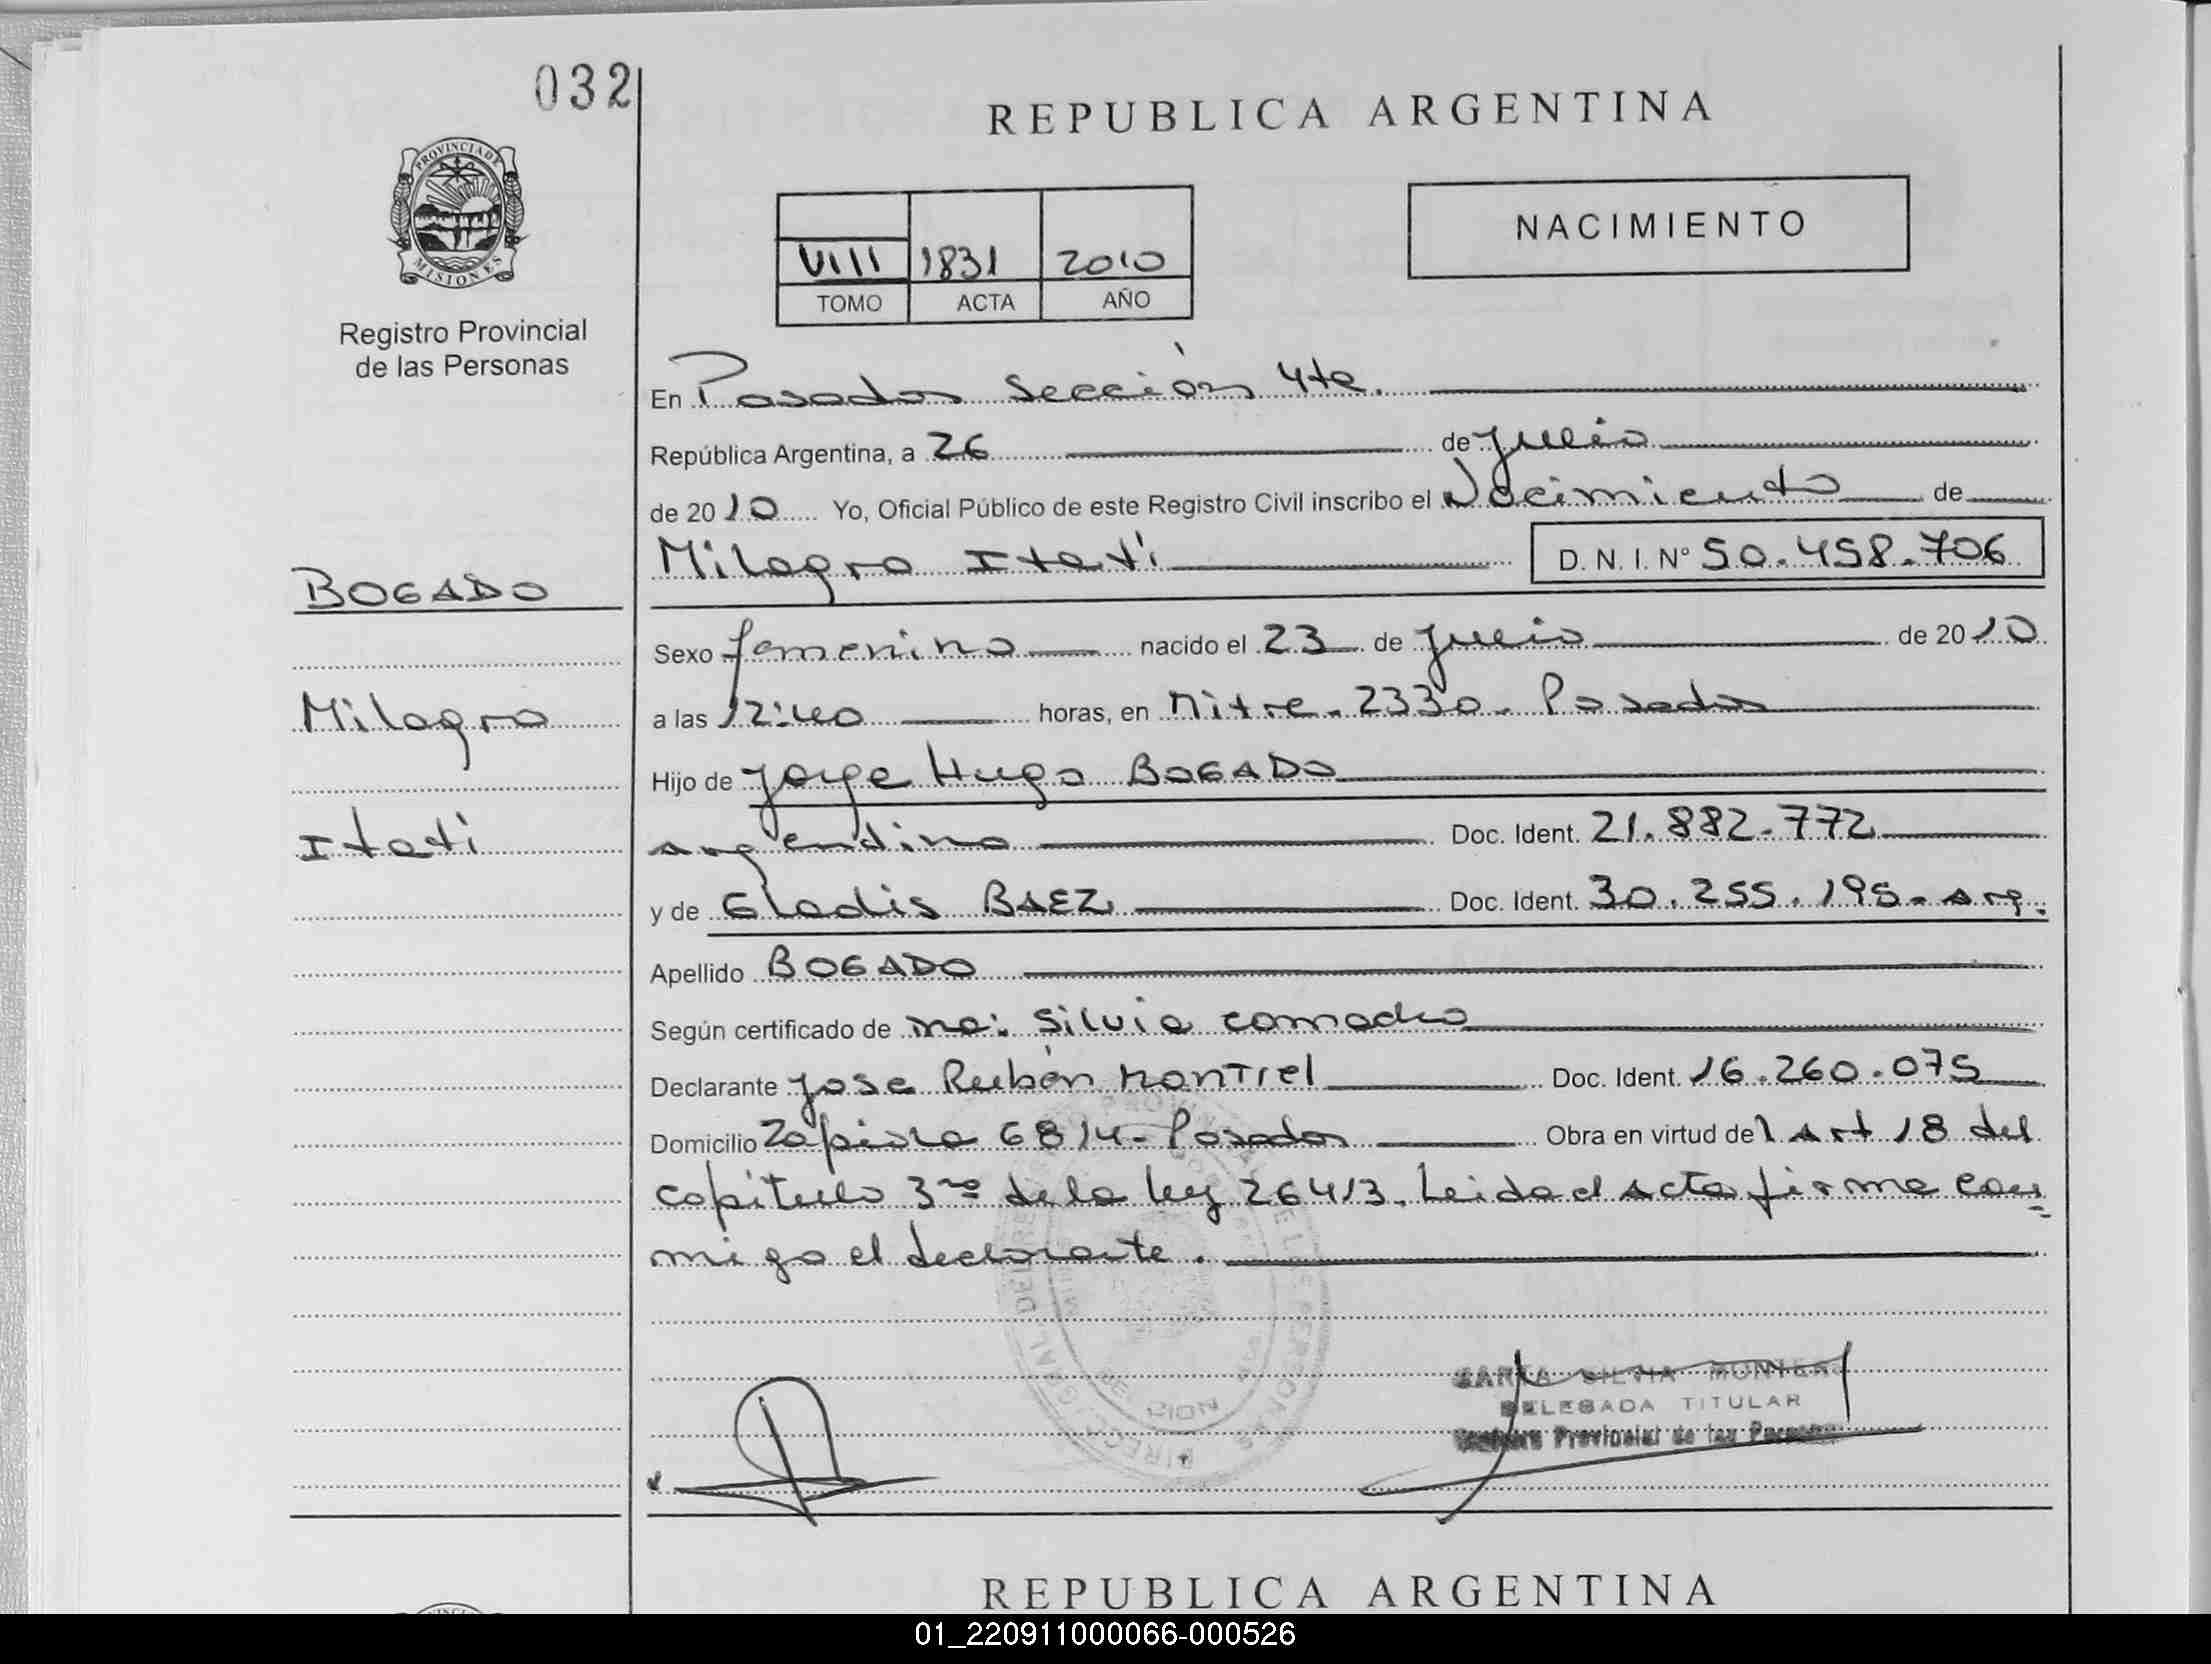 032
REPUBLICA ARGENTINA
PROVINCIA DE
MISIONES
Registro Provincial
de las Personas
VIII 1831 2010
TOMO ACTA AÑO
NACIMIENTO
En Posadas Sección 4ta.
República Argentina, a 26 de Julio
de 2010 Yo, Oficial Público de este Registro Civil inscribo el Nacimiento de
Milagro Itatí D. N. I. Nº 50.458.706
BOGADO
Sexo femenino nacido el 23 de Julio de 2010
Milagro
a las 12:40 horas, en Mitre. 2330. Posadas
Hijo de Jorge Hugo BOGADO
Itatí
argentino Doc. Ident. 21.882.772
y de Gladis BAEZ Doc. Ident. 30.255.195. arg.
Apellido BOGADO
Según certificado de Silvia
Declarante Jose Rubén Montiel Doc. Ident. 16.260.075
Domicilio Zapiola 6814- Posadas Obra en virtud del Art 18 del
capítulo 3ro de la ley 26413. Leida el acta firma con=
migo el declarante.
SILVIA
DELEGADA TITULAR
Provincial de las
REPUBLICA ARGENTINA
01_220911000066-000526